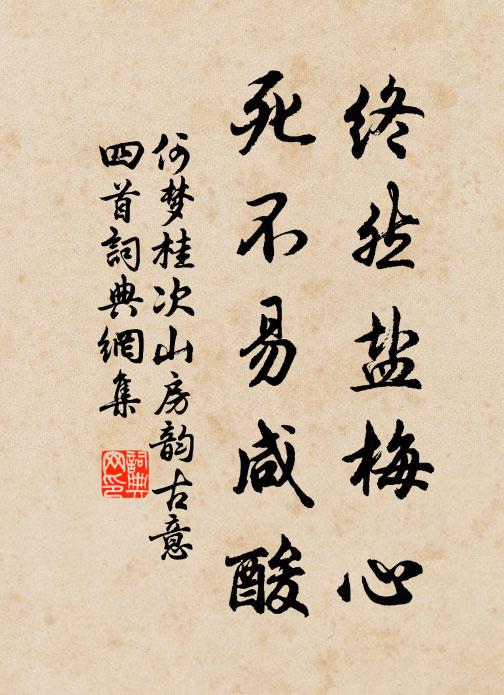 终然盐梅心
死不易咸酸
何梦桂次山房韵古意
四首詞典網集
詞典網印